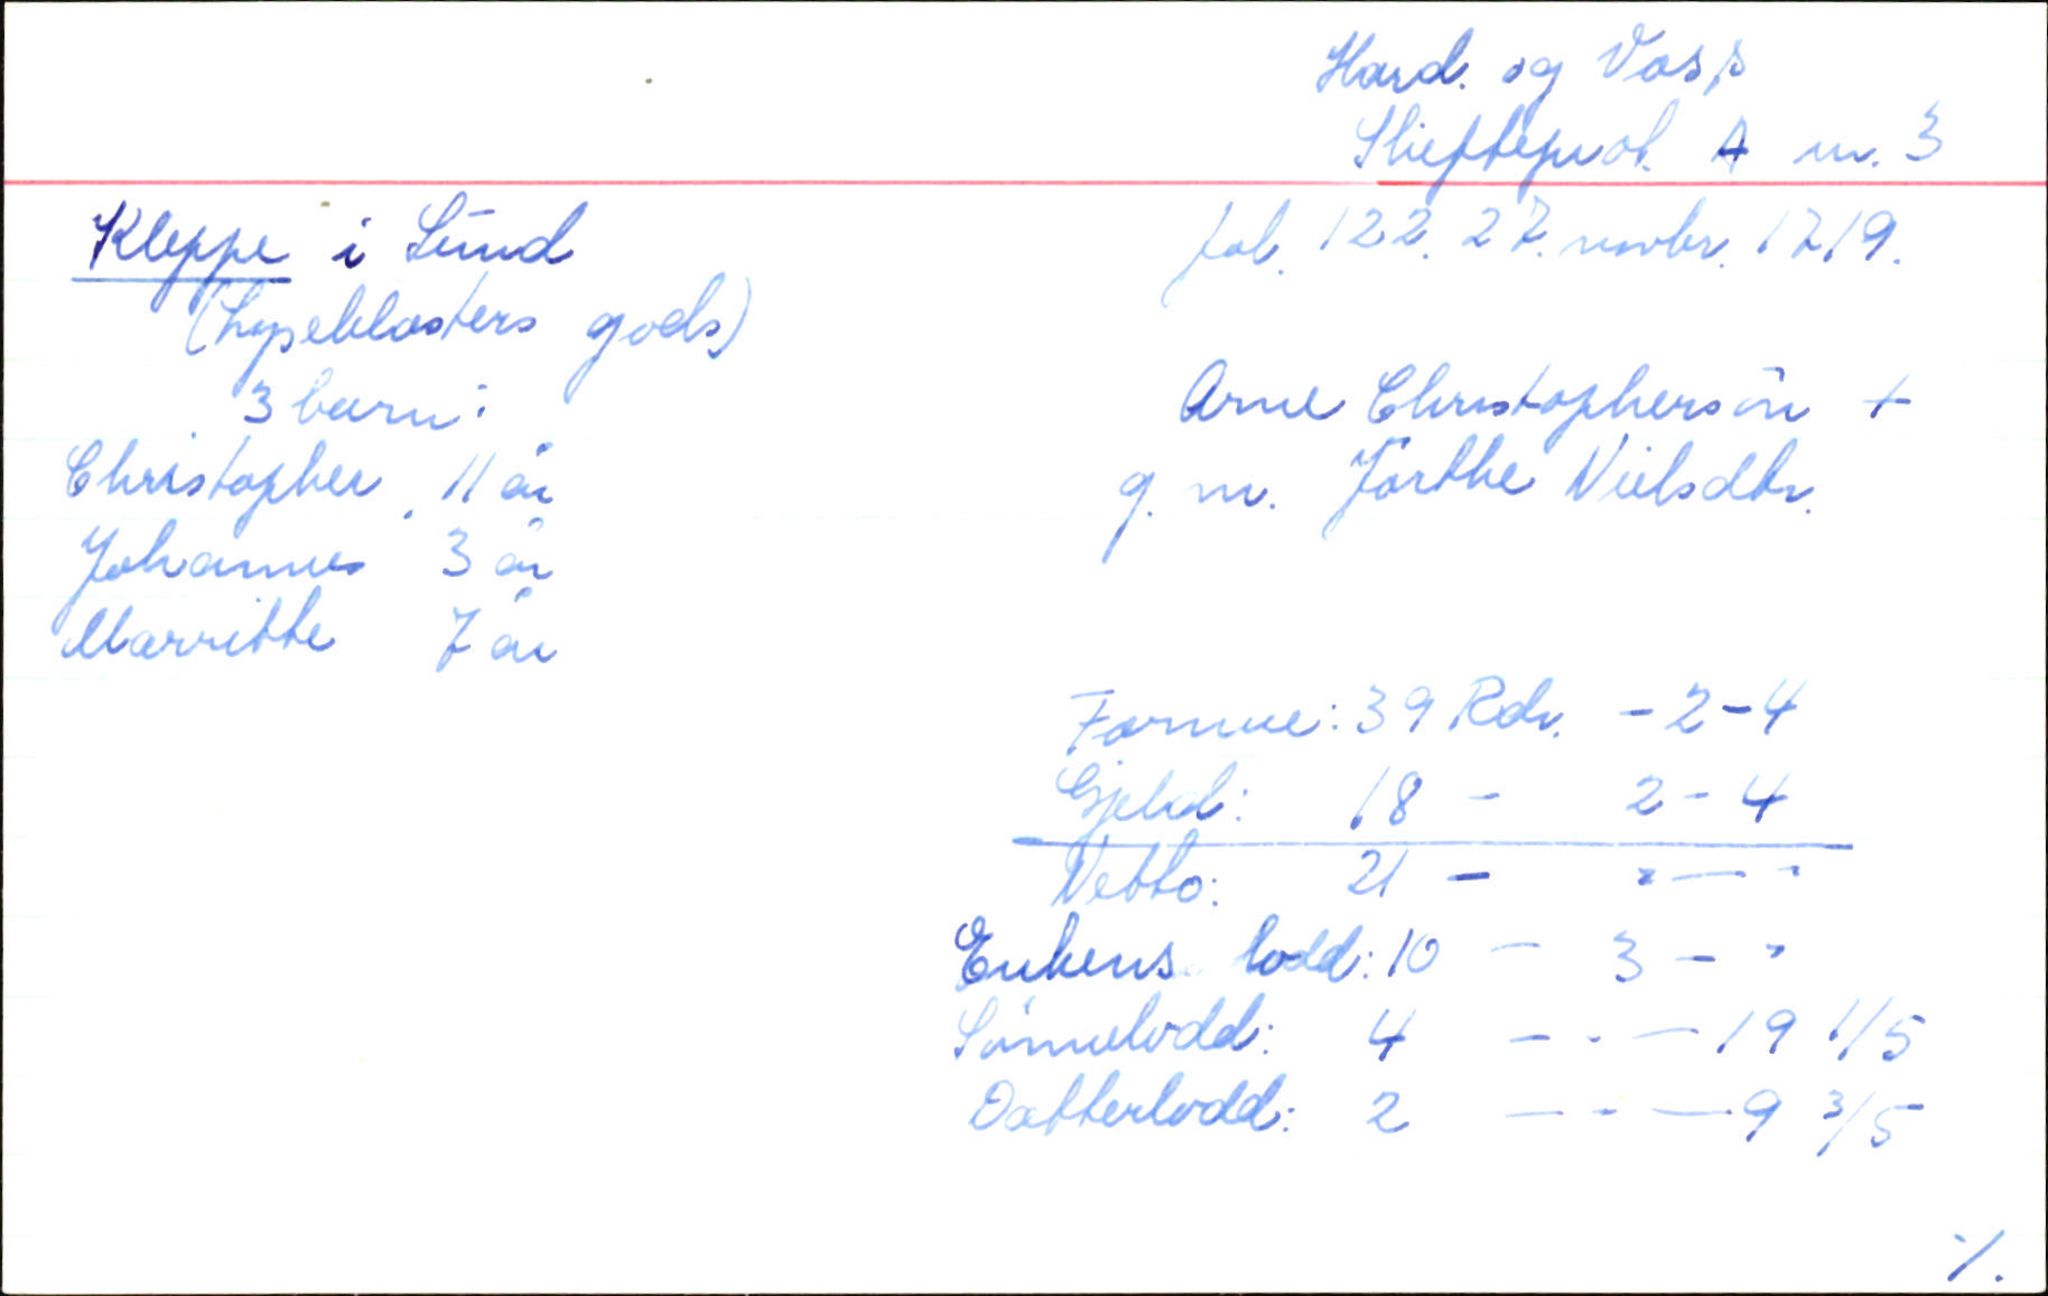 Hard. og Voss
Skifteprot. A nr. 3
fol. 122. 27. novbr. 1719.
Kleppe i Sund
(Lyseklosters gods)
3 barn:
Christopher 11 år
Johannes 3 år
Marritthe 7 år
Arne Christophersön +
g. m. Jörthe Nielsdtr.
Formue: 39 Rdr. - 2 - 4
Gjeld: 18 - 2 - 4
Netto: 21 - " — "
Enkens lodd: 10 - 3 - "
Sönnelodd: 4 - " - 19 1/5
Datterlodd: 2 - " - 9 3/5
·/.